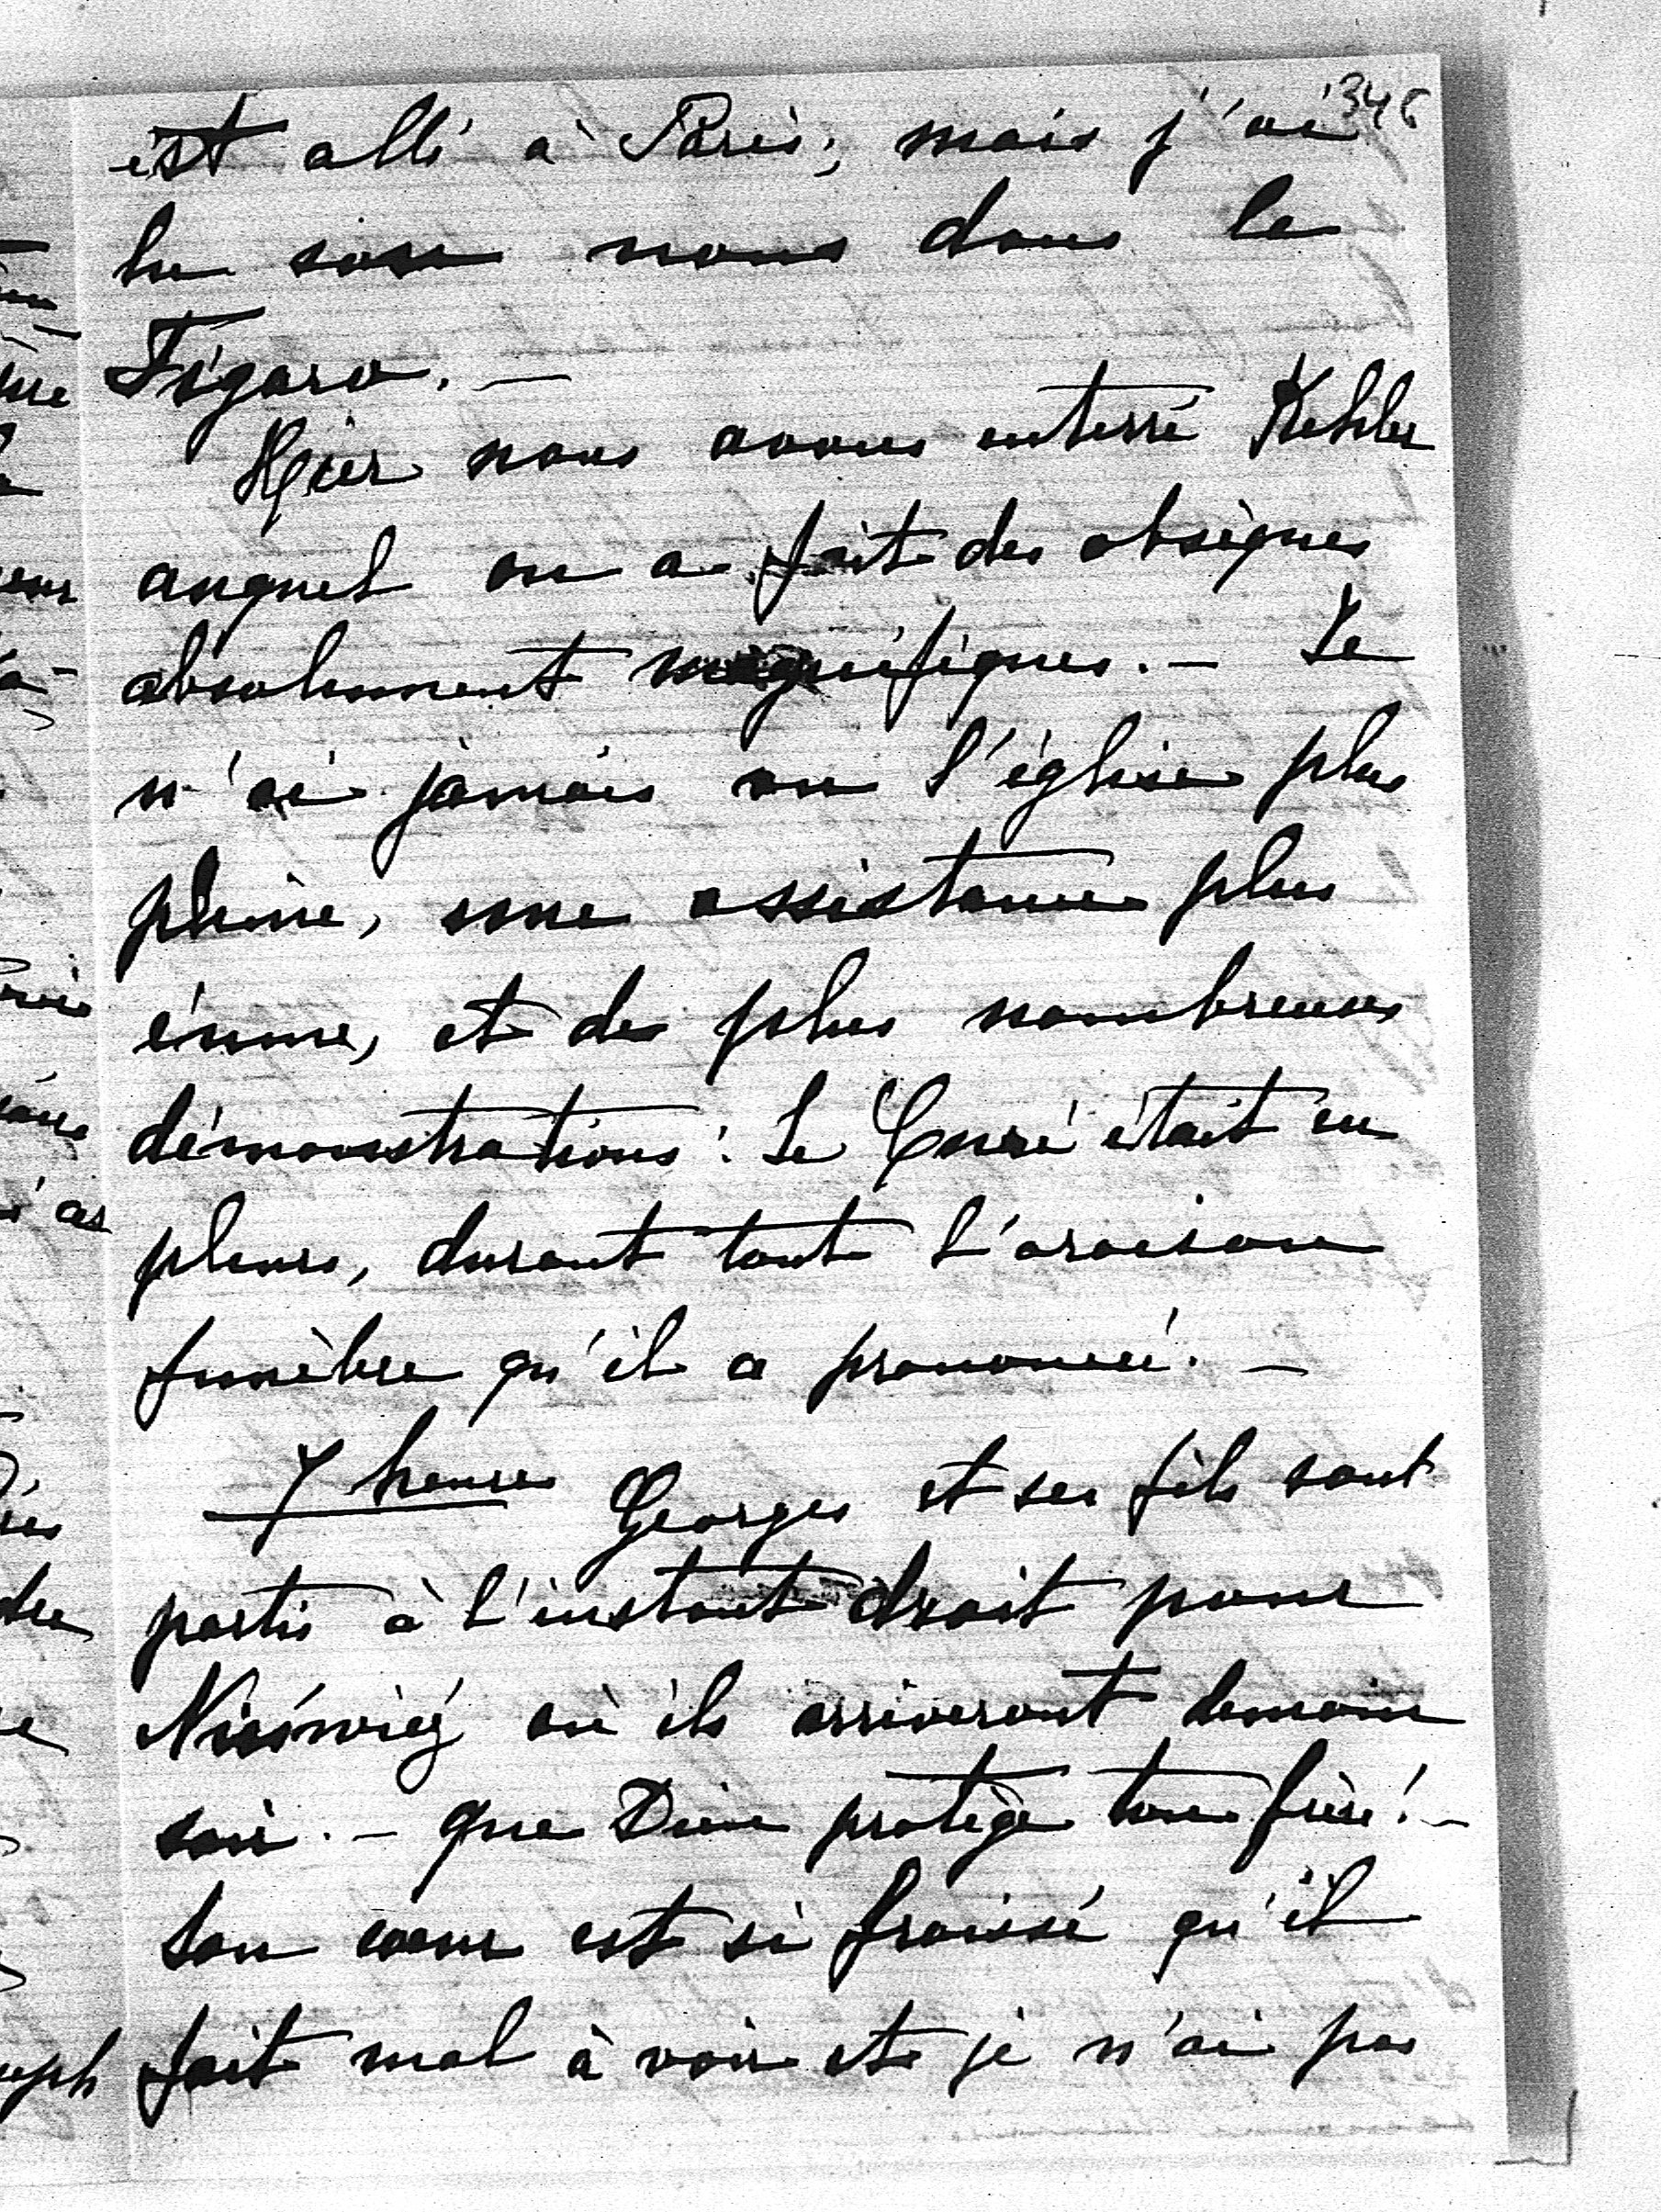 346
est allé à Paris, mais j'ai
lu son nom dans le
Figaro. —
Hier nous avons enterré Kehler
auquel on a fait des obsèques
absolument magnifiques. — Je
n'ai jamais vu l'église plus
pleine, une assistance plus
émue, et de plus nombreuses
démonstrations : Le Curé était en
pleurs, durant tout l'oraison
funèbre qu'il a prononcé. —
7 heures Georges et ses fils sont
partis à l'instant droit pour
Nieświéź où ils arriveront demain
soir. — que Dieu protège ton frère! —
Son cœur est si froissé qu'il
fait mal à voir et je n'ai pas